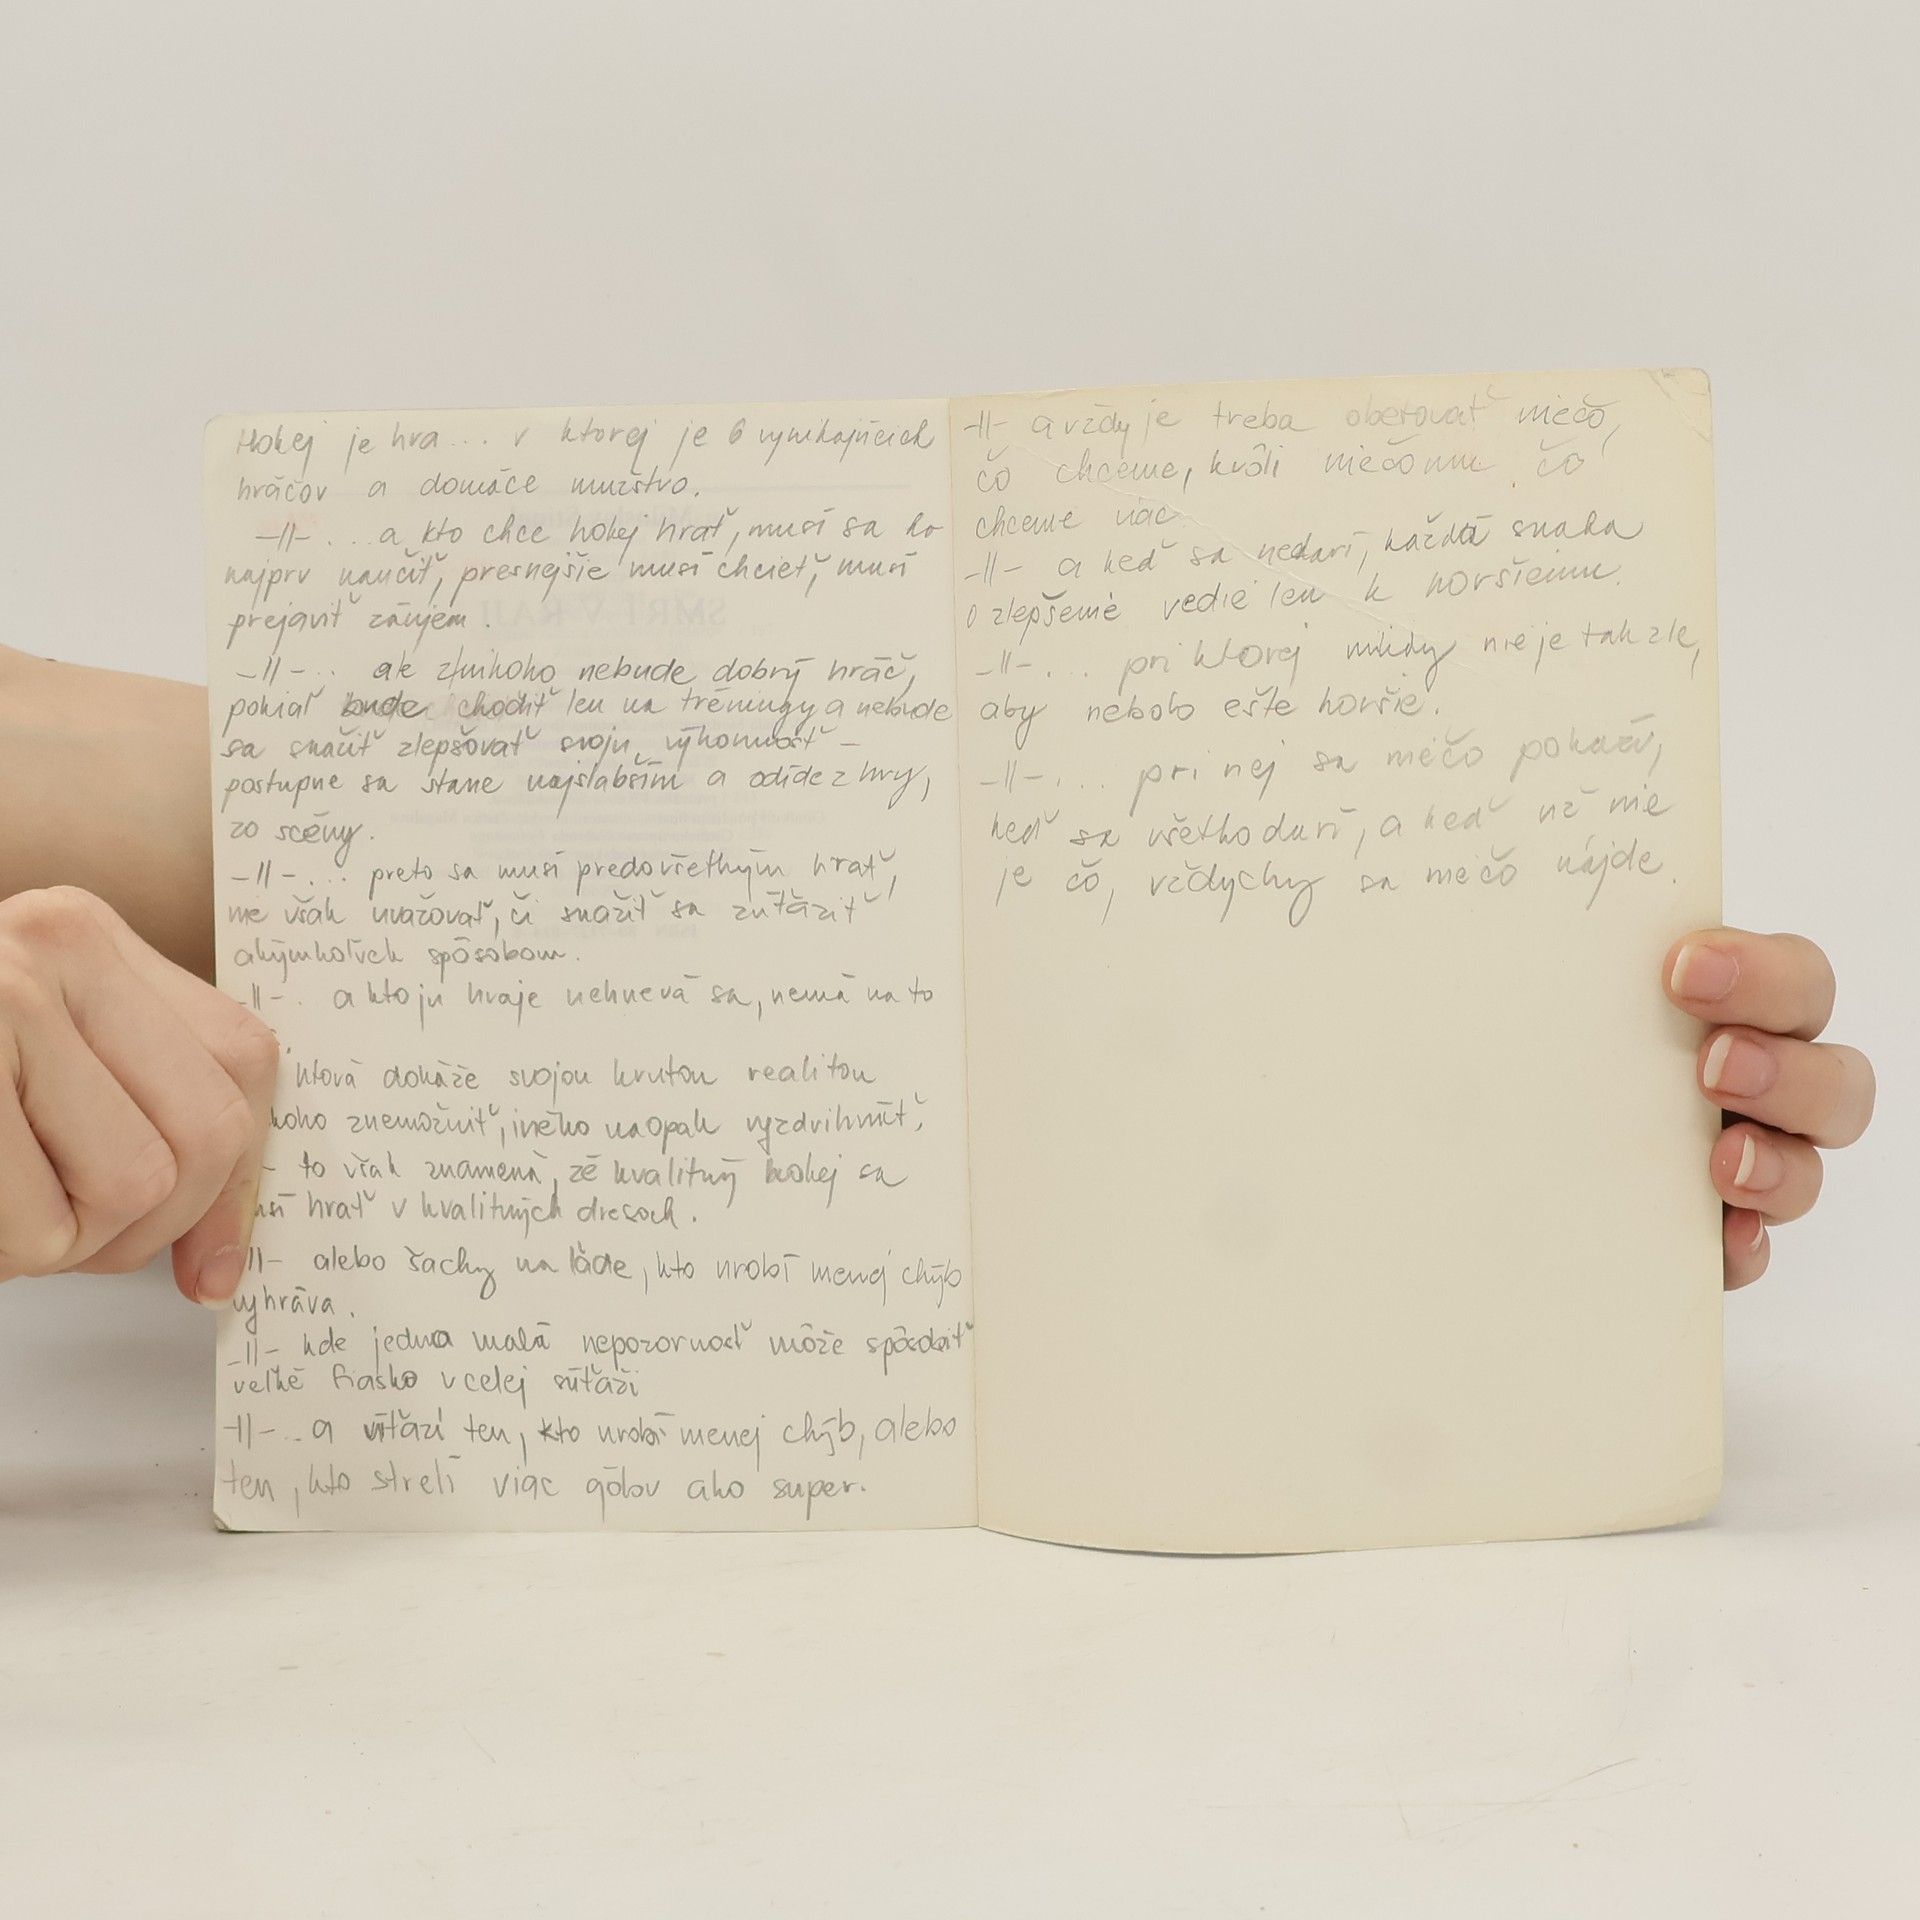 Hokej je hra ... v ktorej je 6 vynikajúcich
hráčov a domáce mužstvo.
-||- ... a kto chce hokej hrať, musí sa ho
najprv naučiť, presnejšie musí chcieť, musí
prejaviť záujem.
-||- .. ale z nikoho nebude dobrý hráč,
pokiaľ bude chodiť len na tréningy a nebude
sa snažiť zlepšovať svoju výkonnosť -
postupne sa stane najslabším a odíde z hry,
zo scény.
-||- ... preto sa musí predovšetkým hrať,
nie však uvažovať, či snažiť sa zvíťaziť
akýmkoľvek spôsobom.
-||- . a kto ju hraje nehnevá sa, nemá na to
ktorá dokáže svojou krutou realitou
koho znemožniť, iného naopak vyzdvihnúť,
- to však znamená, že kvalitný hokej sa
usí hrať v kvalitných dresoch.
||- alebo šachy na ľade, kto urobí menej chýb
vyhráva.
-||- kde jedna malá nepozornosť môže spôsobiť
veľké fiasko v celej súťaži
-||- .. a víťazí ten, kto urobí menej chýb, alebo
ten, kto strelí viac gólov ako super.
-||- a vždy je treba obetovať niečo,
čo chceme, kvôli niečomu čo
chceme viac.
-||- a keď sa nedarí, každá snaha
o zlepšenie vedie len k horšiemu.
-||- ... pri ktorej nikdy nie je tak zle,
aby nebolo ešte horšie.
-||- ... pri nej sa niečo pokazí,
keď sa všetko darí, a keď už nie
je čo, vždycky sa niečo nájde.
SMRŤ V RAJI